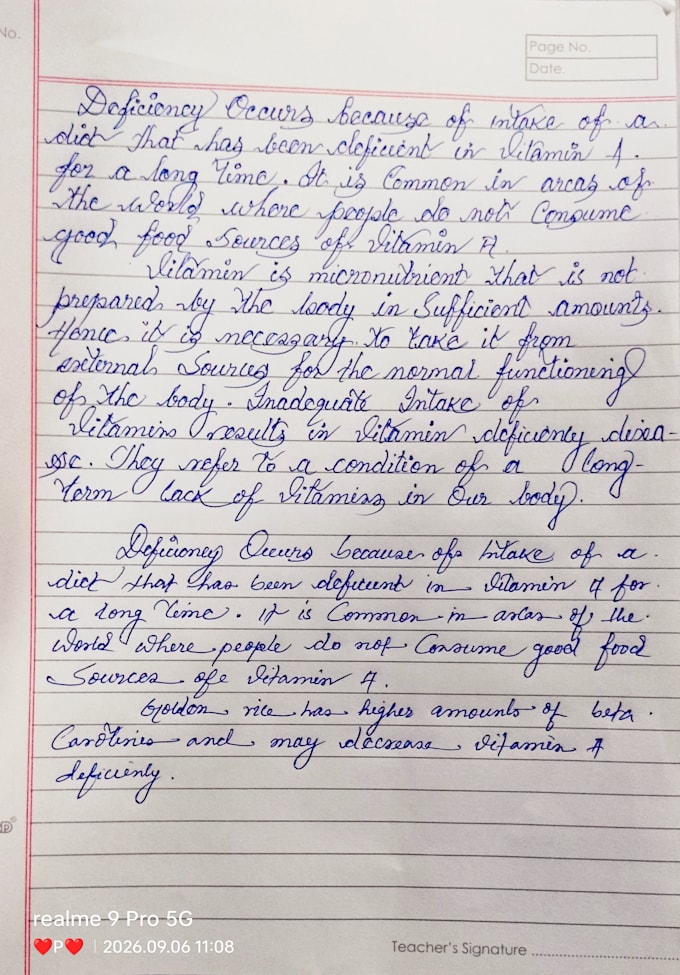 No.
Page No.
Date.
Deficiency Occurs because of intake of a
diet that has been deficient in Vitamin A.
for a long Time. It is Common in areas of
the World where people do not Consume
good food Sources of Vitamin A.
Vitamin is micronutrient that is not
prepared by the body in Sufficient amounts.
Hence it is necessary to take it from
external Sources for the normal functioning
of the body. Inadequate Intake of
Vitamins results in Vitamin deficiency disea-
se. They refer to a condition of a long-
term lack of Vitamins in Our body.
Deficiency Occurs because of Intake of a
diet that has been deficient in Vitamin A for
a long Time. It is Common in areas of the
World where people do not Consume good food
Sources of Vitamin A.
Golden rice has higher amounts of beta
Carotenes and may decrease Vitamin A
deficienly.
realme 9 Pro 5G
❤️P❤️ | 2026.09.06 11:08
Teacher's Signature